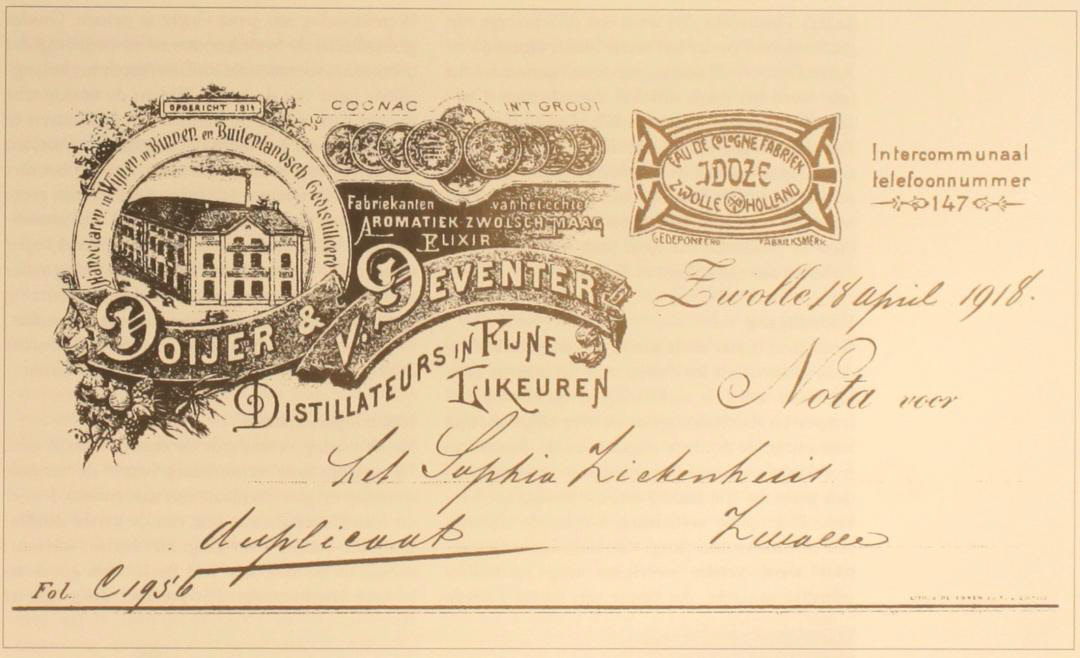 OPGERICHT 1914
Handelaren in Wijnen en Binnen en Buitenlandsch Gedistilleerd
COGNAC INT GROOT
Fabriekanten van het echte
AROMATIEK-ZWOLSCH-MAAG
ELIXIR
DOIJER & V. DEVENTER
DISTILLATEURS IN FIJNE
LIKEUREN
EAU DE COLOGNE FABRIEK
IDOZE
ZWOLLE HOLLAND
GEDEPONEERD FABRIEKSMERK
Intercommunaal
telefoonnummer
147
Zwolle 18 april 1918.
Nota voor
het Sophia Ziekenhuis
duplicaat Zwolle
Fol. C 1956